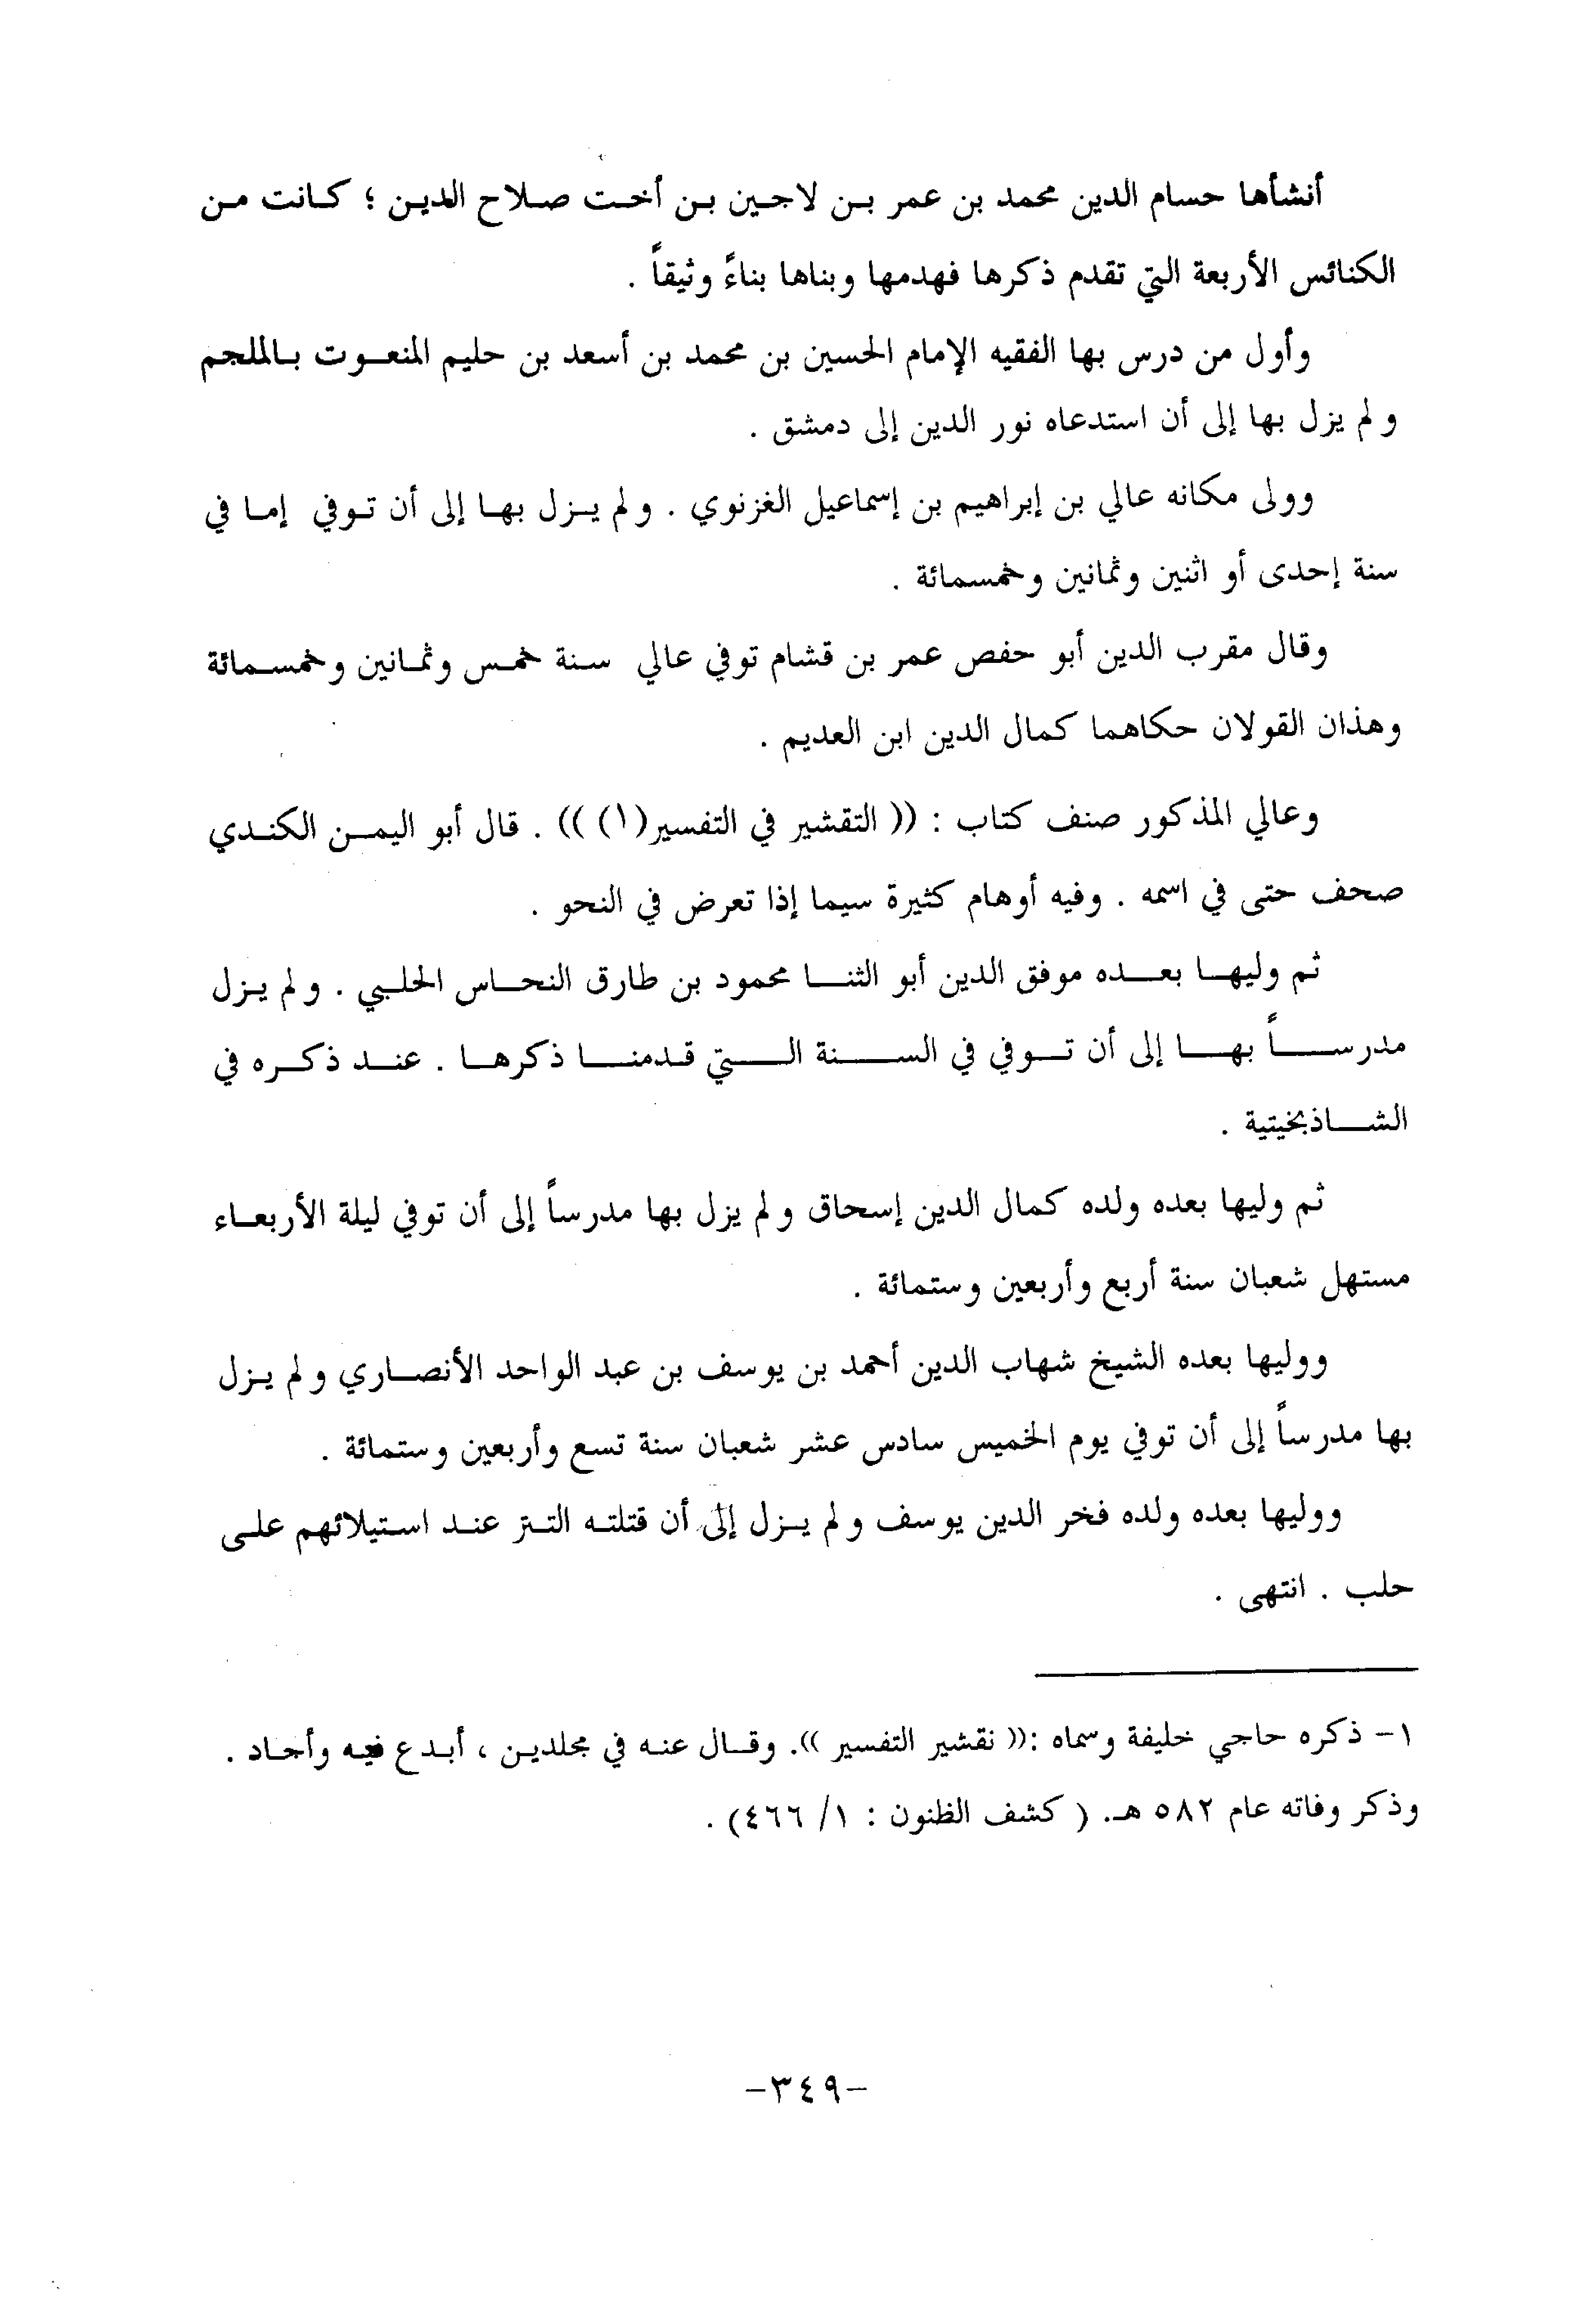 أنشأها حسام الدين محمد بن عمر بن لاجين بن أخت صلاح الدين ؛ كانت من
الكنائس الأربعة التي تقدم ذكرها فهدمها وبناها بناءً وثيقاً .
وأول من درس بها الفقيه الإمام الحسين بن محمد بن أسعد بن حليم المنعوت بالملجم
ولم يزل بها إلى أن استدعاه نور الدين إلى دمشق .
وولى مكانه عالي بن إبراهيم بن إسماعيل الغزنوي . ولم يزل بها إلى أن توفي إما في
سنة إحدى أو اثنين وثمانين وخمسمائة .
وقال مقرب الدين أبو حفص عمر بن قشام توفي عالي سنة خمس وثمانين وخمسمائة
وهذان القولان حكاهما كمال الدين ابن العديم .
وعالي المذكور صنف كتاب : (( التقشير في التفسير(١) )) . قال أبو اليمن الكندي
صحف حتى في اسمه . وفيه أوهام كثيرة سيما إذا تعرض في النحو .
ثم وليها بعده موفق الدين أبو الثنا محمود بن طارق النحاس الحلبي . ولم يزل
مدرساً بها إلى أن توفي في السنة التي قدمنا ذكرها . عند ذكره في
الشاذبخيتية .
ثم وليها بعده ولده كمال الدين إسحاق ولم يزل بها مدرساً إلى أن توفي ليلة الأربعاء
مستهل شعبان سنة أربع وأربعين وستمائة .
ووليها بعده الشيخ شهاب الدين أحمد بن يوسف بن عبد الواحد الأنصاري ولم يزل
بها مدرساً إلى أن توفي يوم الخميس سادس عشر شعبان سنة تسع وأربعين وستمائة .
ووليها بعده ولده فخر الدين يوسف ولم يزل إلى أن قتلته التتر عند استيلائهم على
حلب . انتهى .
١- ذكره حاجي خليفة وسماه :(( نقشير التفسير )). وقال عنه في مجلدين ، أبدع فيه وأجاد .
وذكر وفاته عام ٥٨٢ هـ. ( كشف الظنون : ١/ ٤٦٦) .
-٣٤٩-